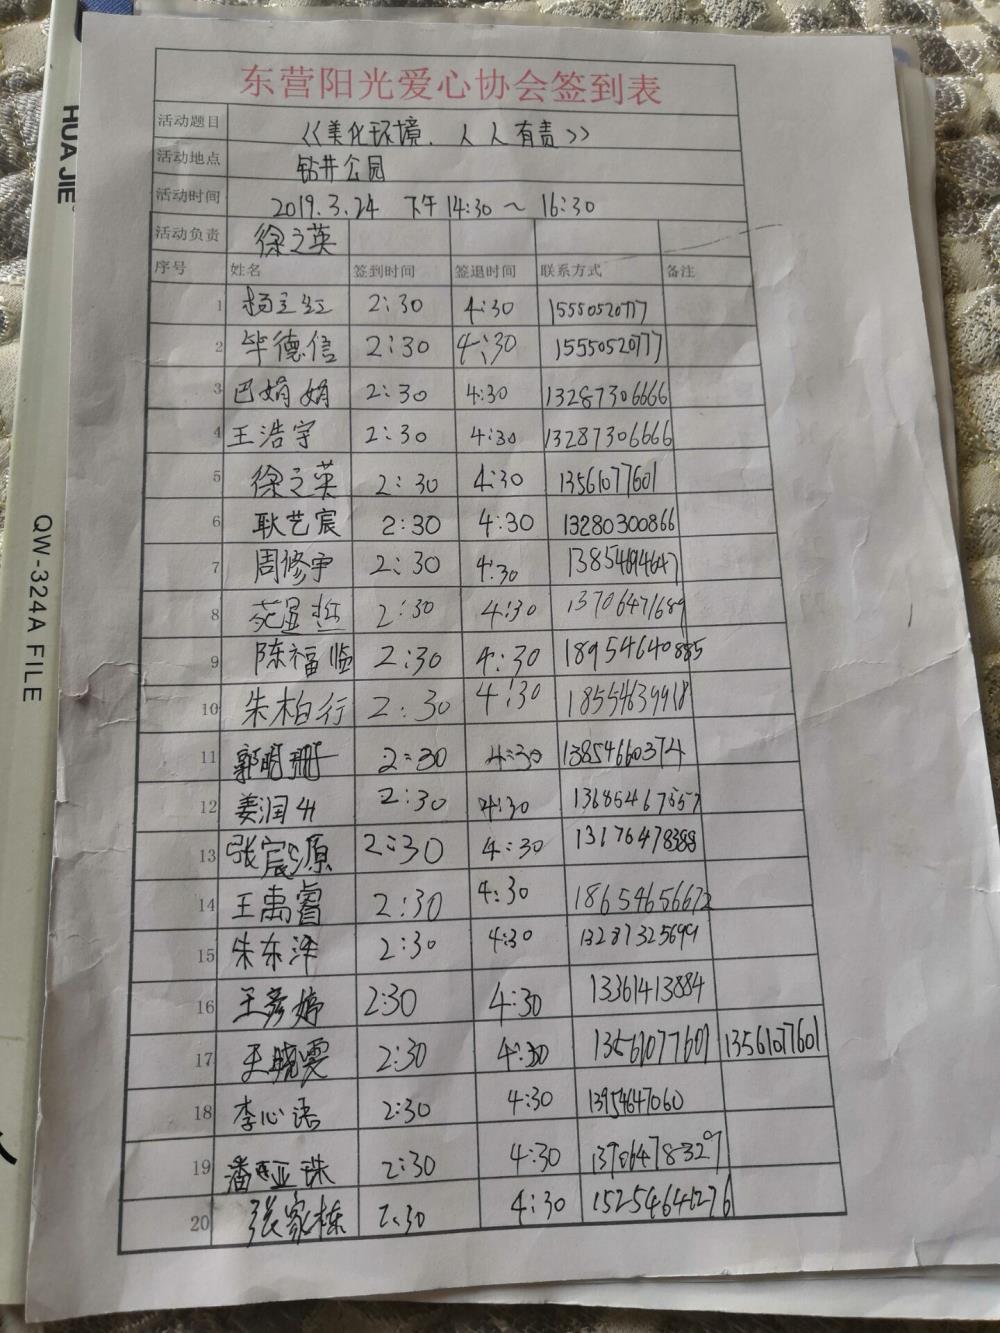 HUA JIE
QW-324A FILE
东营阳光爱心协会签到表
活动题目 《美化环境、人人有责》
活动地点 钻井公园
活动时间 2019.3.24 下午14:30～16:30
活动负责 徐之英
序号 姓名 签到时间 签退时间 联系方式 备注
1 杨立红 2:30 4:30 15550520777
2 毕德信 2:30 4:30 15550520777
3 巴娟娟 2:30 4:30 13287306666
4 王浩宇 2:30 4:30 13287306666
5 徐之英 2:30 4:30 13561077601
6 耿艺宸 2:30 4:30 13280300866
7 周修宇 2:30 4:30 13854694647
8 2:30 4:30 13706471689
9 陈福临 2:30 4:30 18954640885
10 朱柏行 2:30 4:30 18554639918
11 郭晓珊 2:30 4:30 13854660374
12 姜润 2:30 4:30
13 张宸源 2:30 4:30 13176478388
14 王禹睿 2:30 4:30 18654656672
15 朱东洋 2:30 4:30 13287325699
16 王彦婷 2:30 4:30 13361413884
17 王晓雯 2:30 4:30 13561077601 13561077601
18 李心语 2:30 4:30 13954647060
19 潘亚珠 2:30 4:30 13706478329
20 张家栋 2:30 4:30 15254641276